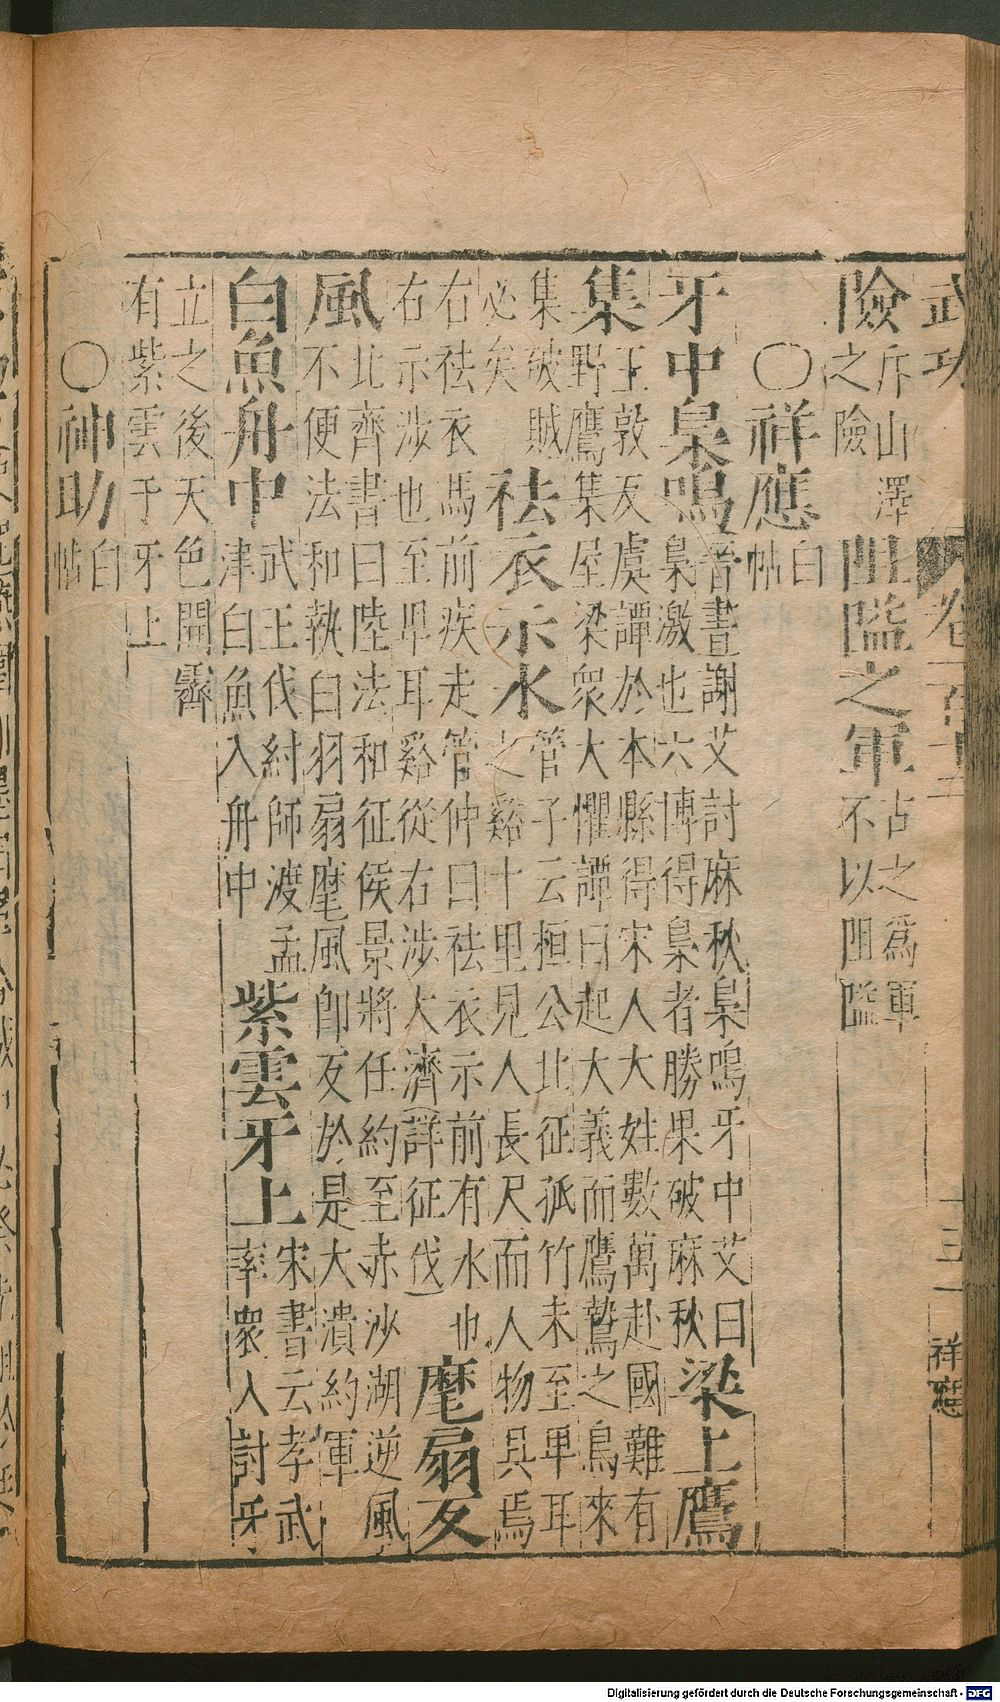 武功
卷一百十三
十三
祥應
險斥山澤之險阻隘之軍古之爲軍不以阻隘
○祥應白帖
牙中梟鳴晋書謝艾討麻秋梟鳴牙中艾曰梟激也六博得梟者勝果破麻秋梁上鷹
集王敦反虞譚於本縣得宋人大姓數萬赴國難有野鷹集屋梁衆大懼譚曰起大義而鷹鷙之鳥來
集破賊必矣祛衣示水管子云桓公北征孤竹未至卑耳之谿十里見人長尺而人物具焉
右祛衣馬前疾走管仲曰祛衣示前有水也右示涉也至卑耳谿從右涉大濟(詳征伐)麾扇反
風北齊書曰陸法和征侯景將任約至赤沙湖逆風不便法和執白羽扇麾風卽反於是大潰約軍
白魚舟中武王伐紂師渡孟津白魚入舟中紫雲牙上宋書云孝武率衆入討牙
立之後天色開霽有紫雲于牙上
○神助白帖
Digitalisierung gefördert durch die Deutsche Forschungsgemeinschaft - DFG